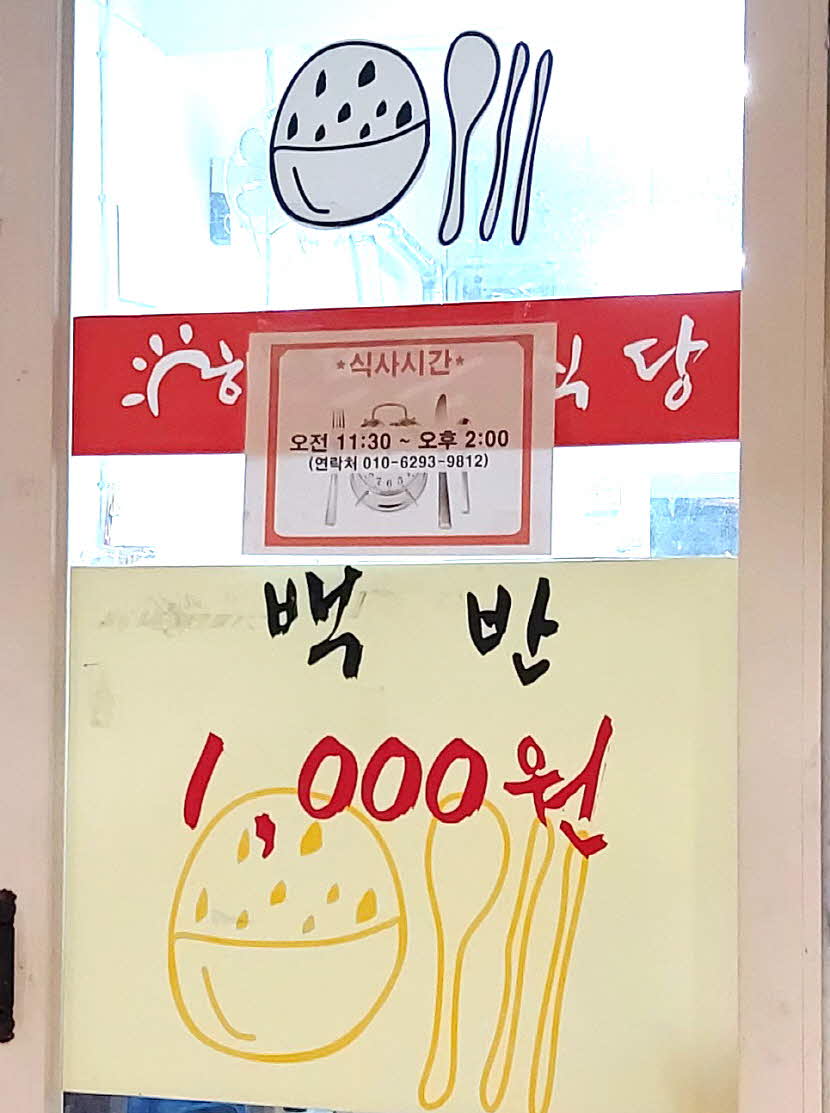 식당
*식사시간*
오전 11:30 ~ 오후 2:00
(연락처 010-6293-9812)
백반
1,000원